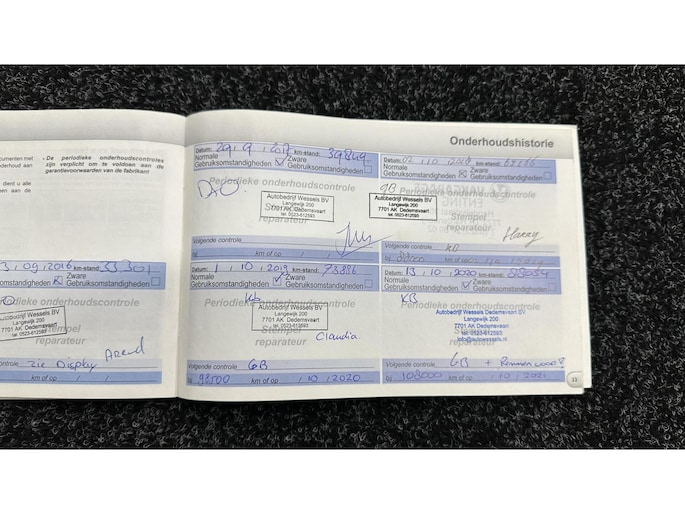 Onderhoudshistorie
documenten met
rhoud aan
dient u alle
en aan de
- De periodieke onderhoudscontroles
zijn verplicht om te voldoen aan de
garantievoorwaarden van de fabrikant
09, 2016 km-stand:
Zware
omstandigheden Gebruiksomstandigheden
Periodieke onderhoudscontrole
Autobedrijf Wessels BV
Langewijk 200
7701 AK Dedemsvaart
tel. 0523-612593
Stempel
reparateur
controle zie Display
km of op / /
Datum: 29, 9, 2017 km-stand: 39849
Normale Zware
Gebruiksomstandigheden Gebruiksomstandigheden
Periodieke onderhoudscontrole
Autobedrijf Wessels BV
Langewijk 200
7701 AK Dedemsvaart
tel. 0523-612593
Stempel
reparateur
Volgende controle
bij km of op
Datum: 02, 10, 2018 km-stand:
Normale Zware
Gebruiksomstandigheden Gebruiksomstandigheden
GB
Periodieke onderhoudscontrole
Autobedrijf Wessels BV
Langewijk 200
7701 AK Dedemsvaart
tel. 0523-612593
Stempel
reparateur
Harry
Volgende controle KB
bij 88000 km of op
Datum: 1, 10, 2019 km-stand: 73886
Normale Zware
Gebruiksomstandigheden Gebruiksomstandigheden
Periodieke onderhoudscontrole
Kb
Autobedrijf Wessels BV
Langewijk 200
7701 AK Dedemsvaart
tel. 0523-612593
Stempel
reparateur
Claudia
Volgende controle GB
bij 98500 km of op / 10 / 2020
Datum: 13, 10, 2020 km-stand:
Normale Zware
Gebruiksomstandigheden Gebruiksomstandigheden
KB
Periodieke onderhoudscontrole
Autobedrijf Wessels Dedemsvaart BV
Langewijk 200
7701 AK Dedemsvaart
tel. 0523-612593
info@autowessels.nl
Stempel
reparateur
Volgende controle GB +
bij 108000 km of op / 10 / 2021
33